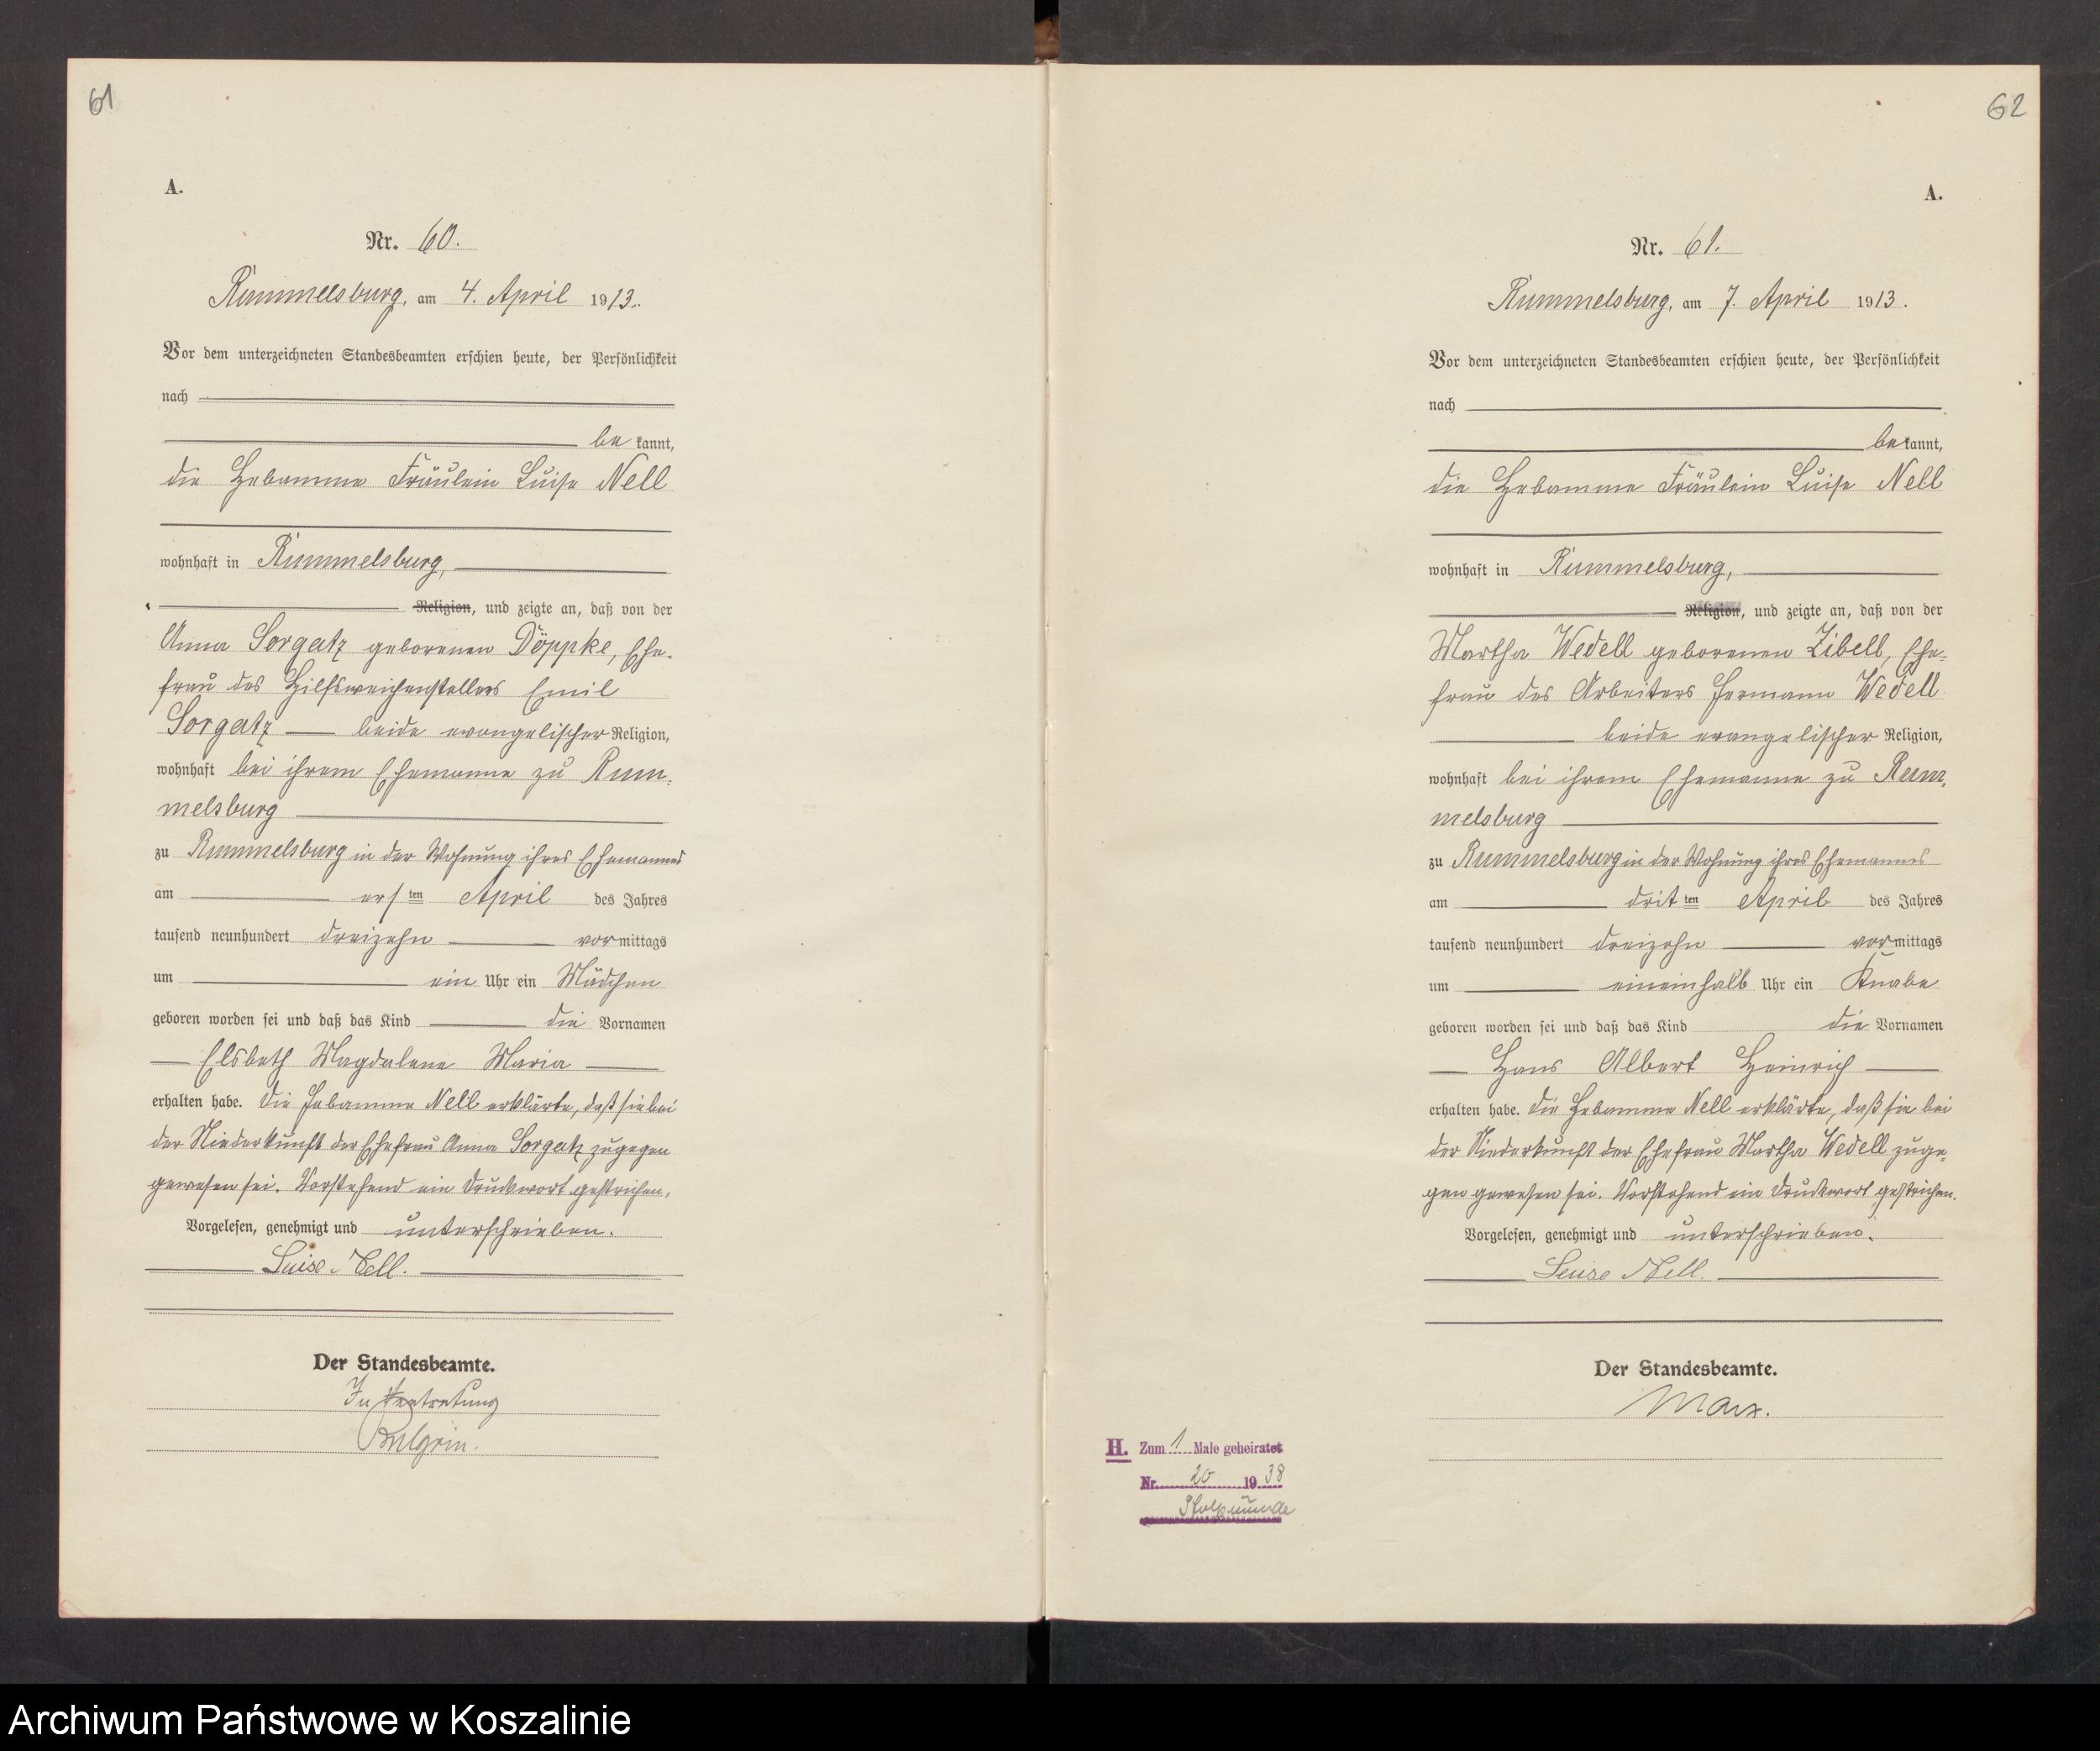 61
A.
Nr. 60.
Rummelsburg, am 4. April 1913.
Vor dem unterzeichneten Standesbeamten erschien heute, der Persönlichkeit
nach
be kannt,
die Hebamme Fräulein Luise Nell
wohnhaft in Rummelsburg,
Religion, und zeigte an, daß von der
Anna Sorgatz geborenen Döppke, Ehe-
frau des Hilfsweichenstellers Emil
Sorgatz beide evangelischer Religion,
wohnhaft bei ihrem Ehemanne zu Rum-
melsburg
zu Rummelsburg in der Wohnung ihres Ehemannes
am ersten April des Jahres
tausend neunhundert dreizehn vormittags
um ein Uhr ein Mädchen
geboren worden sei und daß das Kind die Vornamen
Elsbeth Magdalene Maria
erhalten habe. Die Hebamme Nell erklärte, daß sie bei
der Niederkunft der Ehefrau Anna Sorgatz zugegen
gewesen sei. Vorstehend ein Druckwort gestrichen.
Vorgelesen, genehmigt und unterschrieben.
Luise Nell.
Der Standesbeamte.
In Vertretung
62
A.
Nr. 61.
Rummelsburg, am 7. April 1913.
Vor dem unterzeichneten Standesbeamten erschien heute, der Persönlichkeit
nach
be kannt,
die Hebamme Fräulein Luise Nell
wohnhaft in Rummelsburg,
Religion, und zeigte an, daß von der
Martha Wedell geborenen Zibell, Ehe-
frau des Arbeiters Hermann Wedell
beide evangelischer Religion,
wohnhaft bei ihrem Ehemanne zu Rum-
melsburg
zu Rummelsburg in der Wohnung ihres Ehemannes
am dritten April des Jahres
tausend neunhundert dreizehn vormittags
um eineinhalb Uhr ein Knabe
geboren worden sei und daß das Kind die Vornamen
Hans Albert Heinrich
erhalten habe. Die Hebamme Nell erklärte, daß sie bei
der Niederkunft der Ehefrau Martha Wedell zuge-
gen gewesen sei. Vorstehend ein Druckwort gestrichen.
Vorgelesen, genehmigt und unterschrieben.
Luise Nell.
Der Standesbeamte.
Marx.
H. Zum 1 Male geheiratet
Nr. 20 1938
Stolpmünde
Archiwum Państwowe w Koszalinie